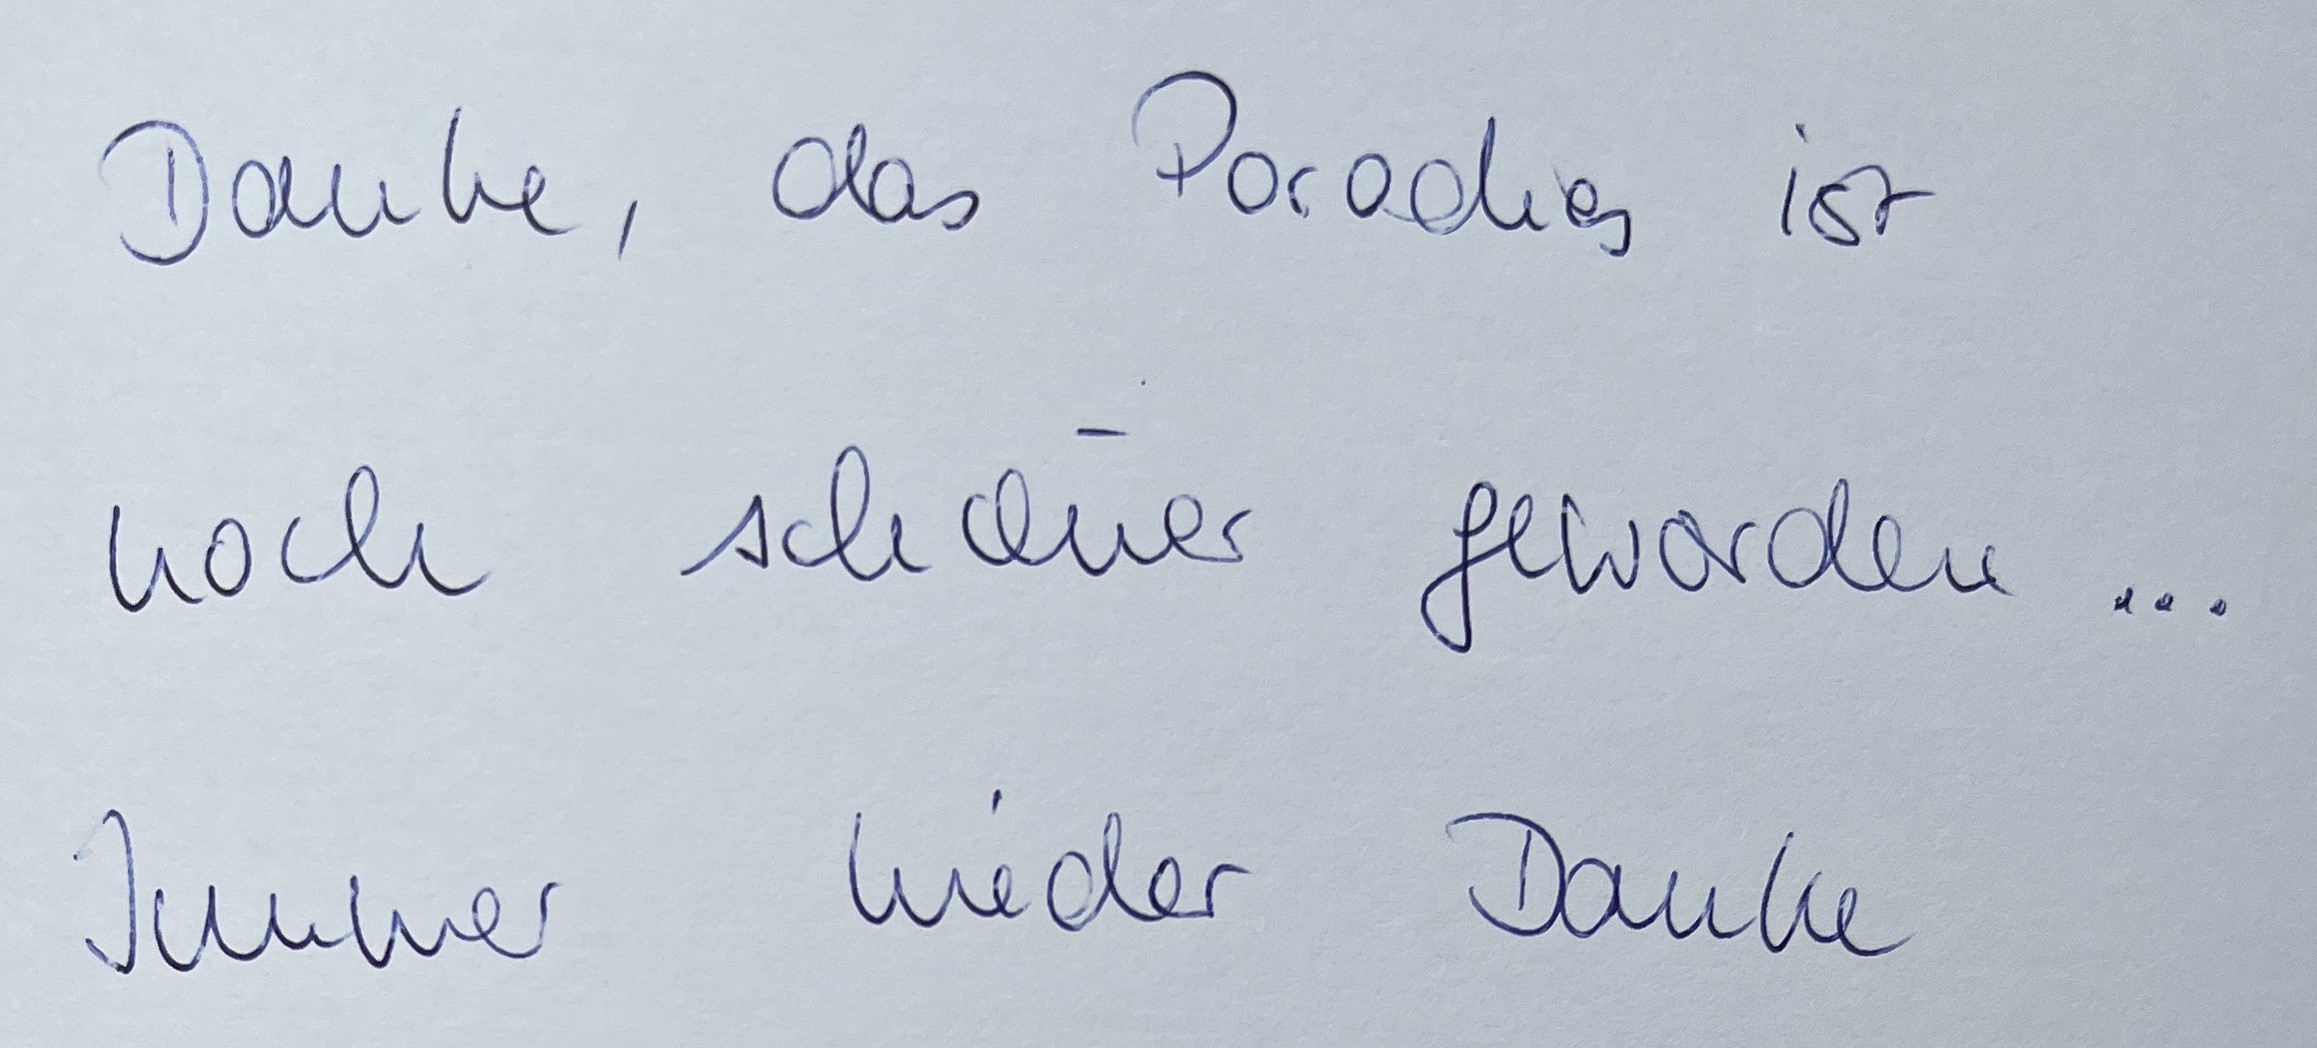 Danke, das Paradies ist
noch schöner geworden ...
Immer wieder Danke